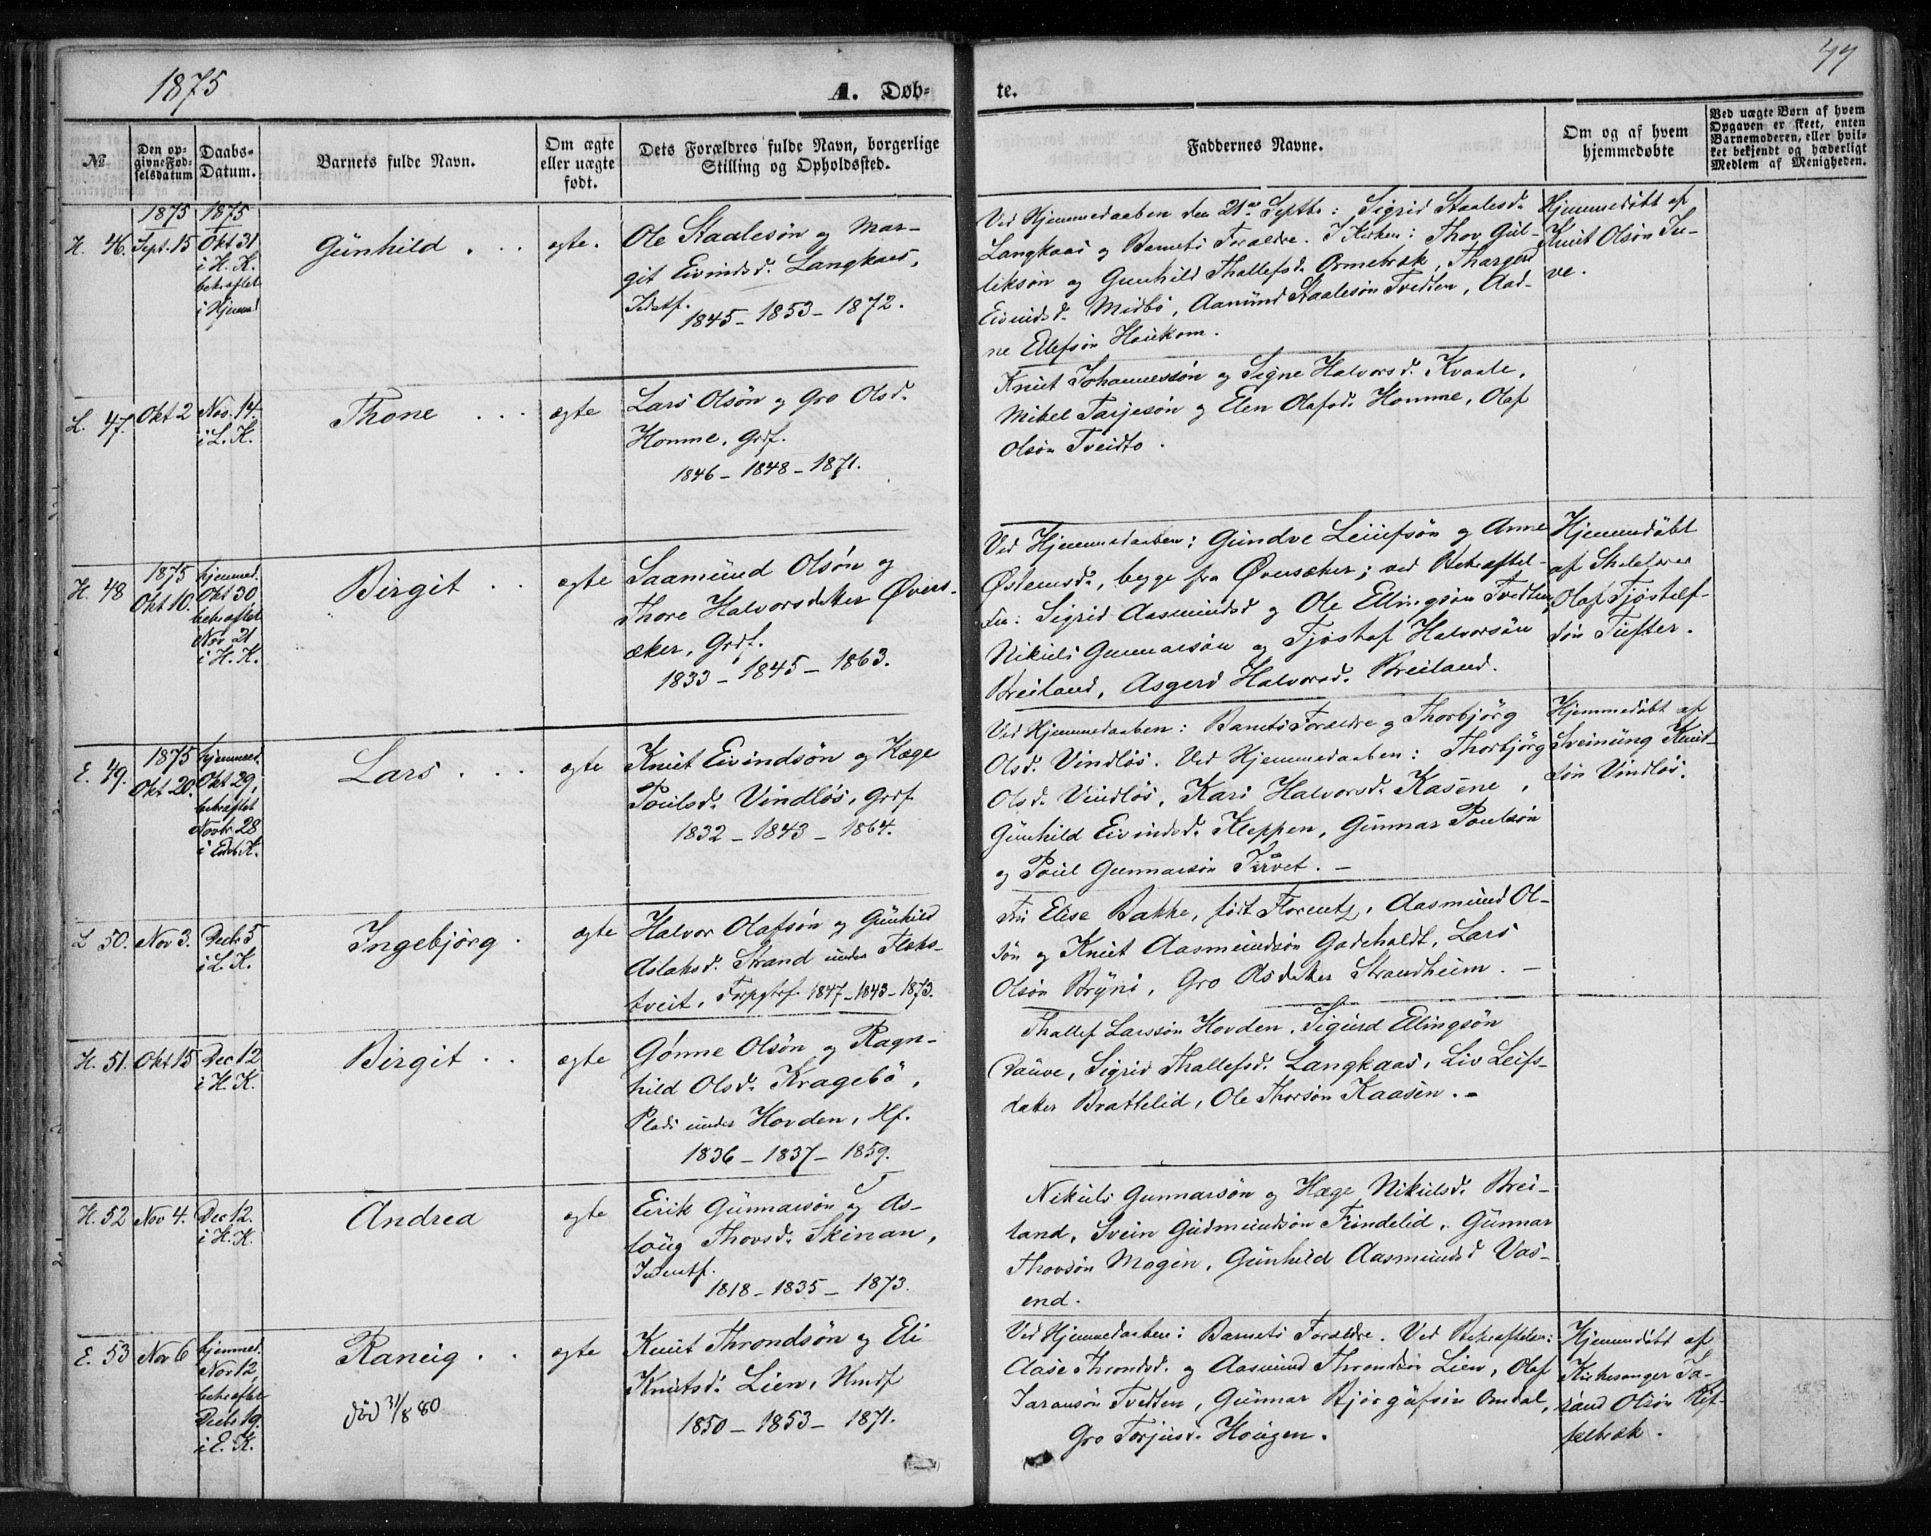 1875
A. Døb-
te.
77
№
Den op-
givne Fød-
selsdatum
Daabs-
Datum.
Barnets fulde Navn.
Om ægte
eller uægte
født.
Dets Forældres fulde Navn, borgerlige
Stilling og Opholdssted.
Faddernes Navne.
Om og af hvem
hjemmedøbte
Ved uægte Børn af hvem
Opgaven er skeet, enten
Barnemoderen, eller hvil-
ket bekjendt og hæderligt
Medlem af Menigheden.
H. 46.
1875
Sept. 15
1875
Okt 31
i H. K.
bekræftet
i Hjemmed
Gunhild .
ægte.
Ole Staalesøn og Mar-
git Eivindsd. Langkaas,
1845 - 1853 - 1872.
Ved Hjemmedaaben den 21de Septbr: Sigrid Staalesd.
Langkaas og Barnets Forældre. I Kirken: Thov Gul-
liksøn og Gunhild Thallefsd. Ormebræk, Thargerd
Eivindsd. Midbö, Aamund Staalesøn Tvedten, Aad-
ne Ellefsøn Haukom.
Hjemmedöbt af
Knut Olsön Tu-
ve.
L. 47.
Okt 2
Nov. 14.
i L. K.
Thone . . .
ægte
Lars Olsön og Gro Olsd.
Homme, Grdf.
1846 - 1848 - 1871.
Knut Johannessön og Signe Halvorsd. Kvaale,
Mikel Tarjesön og Elen Olafsd. Homme, Olaf
Olsön Tveidto .
H. 48
1875
Okt 10.
hjemmed.
Okt 30
bekræftet
Nov 21
i H. K.
Birgit . .
ægte
Saamund Olsön og
Thore Halvorsdatter Övers-
æker, Grdf.
1833 - 1845 - 1863.
Ved Hjemmedaaben: Gundve Leiufsön og Anne
Østensd., begge fra Øversæker; ved Bekræftel-
sen: Sigrid Aasmundsd og Ole Ellingsön Tvedten,
Nikuls Gunnarsön og Tjöstaf Halvorsön
Breiland, Asgerd Halvorsd. Breiland.
Hjemmedöbt
af Skolelærer
Olaf Tjöstelf-
sön Tufter.
E. 49.
1875
Okt 20.
hjemmed.
Okt 29,
bekræftet
Novbr 28
i Eids K.
Lars . . .
ægte
Knut Eivindsön og Hæge
Poulsd. Vindlös, Grdf.
1832 - 1843 - 1864.
Ved Hjemmedaaben: Barnets Forældre og Thorbjörg
Olsd. Vindlös. Ved Hjemmedaaben: Thorbjörg
Olsd. Vindlös, Kari Halvorsd. Kasene,
Gunhild Eivindsd. Kleppen, Gunnar Poulsön
og Poul Gunnarsön Kirvet. -
Hjemmedöbt af
Sveinung Knud-
sön Vindlös.
L 50.
Nov 3.
Decbr 5
i L. K.
Ingebjörg .
ægte
Halvor Olafsön og Gunhild
Aslaksd. Strand under Flats-
tveit, 1847 - 1843 - 1873.
Fru Elise Bakke, født Florentz, Aasmund Ol-
sön og Knut Aasmundsön Gadehaldt, Lars
Olsön Bryni, Gro Olsdatter Strandheim. -
H. 51.
Okt 15
Dec 12
i H. K.
Birgit . .
ægte
Gönne Olsön og Ragn-
hild Olsd. Kragebö,
Plads under Hovden, Hf.
1836 - 1837 - 1859.
Thallef Larssön Hovden, Sigurd Ellingsön
Dauve, Sigrid Thallefsd. Langkaas, Liv Leifs-
datter Brattelid, Ole Thorsön Kaasen. -
H. 52
Nov 4.
Dec 12.
i H. K.
Andrea
ægte
Eirik Gunnarsön og As-
laug Thovsd. Skinan,
1818 - 1835 - 1873.
Nikuls Gunnarsön og Hæge Nikulsd. Brei-
land, Svein Gudmundsön Findelid, Gunnar
Thovsön Mogen, Gunhild Aasmundsd Vas-
end.
E. 53
Nov 6
hjemmed.
Nov 12,
bekræftet
Decbr 19
i E. K.
Raneig . .
död 31/8 80
ægte
Knut Throndsön og Eli
Knutsd. Lien, Hmdf
1850 - 1853 - 1871.
Ved Hjemmedaaben: Barnets Forældre. Ved Bekræftelsen:
Aase Throndsd. og Aasmund Throndsön Lien, Olaf
Taransön Tvedten, Gunnar Björgulfsön Omdal,
Gro Torjusd. Haugen.
Hjemmedöbt af
Kirkesanger Ta-
rand Olsön Kit-
telbæk.